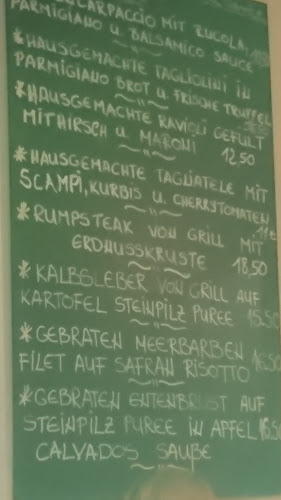 CARPACCIO MIT RUCOLA,
PARMIGIANO U BALSAMICO SAUCE
*HAUSGEMACHTE TAGLIOLINI IN
PARMIGIANO BROT U FRISCHE TRUFFEL
*HAUSGEMACHTE RAVIOLI GEFULT
MITHIRSCH U MARONI 12,50
*HAUSGEMACHTE TAGLIATELE MIT
SCAMPI, KURBIS U. CHERRYTOMATEN
*RUMPSTEAK VON GRILL MIT
ERDNUSSKRUSTE 18,50
*KALBGLEBER VON GRILL AUF
KARTOFEL STEINPILZ PUREE 15.50
*GEBRATEN MEERBARBEN
FILET AUF SAFRAN RISOTTO
*GEBRATEN ENTENBRUST AUF
STEINPILZ PUREE IN APFEL
CALVADOS SAUßE